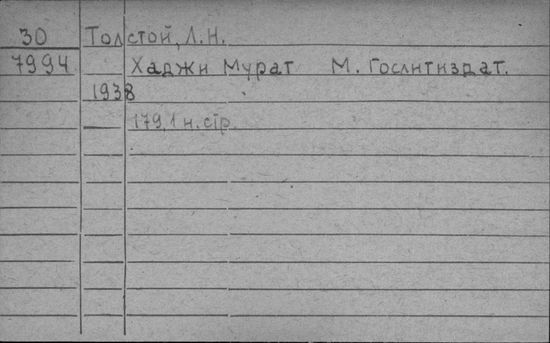 30 Толстой, Л.Н.
7994 Хаджи Мурат М. Гослитиздат.
1938
179,1 н. стр.